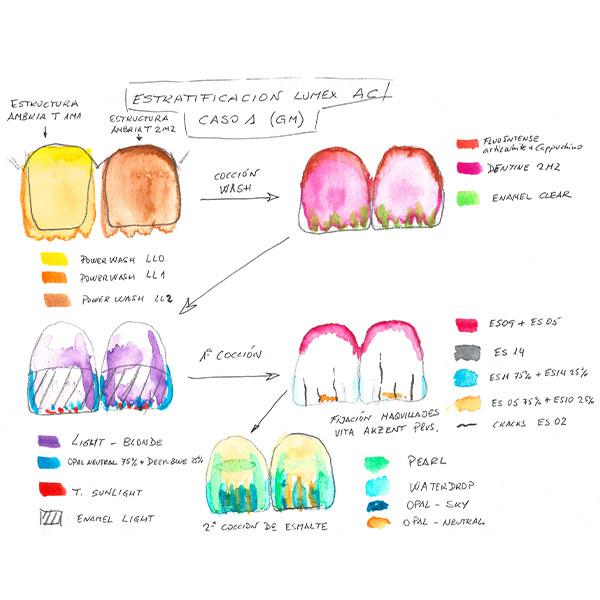 ESTRATIFICACION LUMEX AC/
CASO 1 (GM)
ESTRUCTURA
AMBRIA T 1M1
ESTRUCTURA
AMBRIA T 2M2
COCCIÓN
WASH
FLUOINTENSE
articwhite + Cappuchino
DENTINE 2M2
ENAMEL CLEAR
POWERWASH LL0
POWERWASH LL1
POWER WASH LL2
1ª COCCIÓN
ES09 + ES 05
ES 14
ES11 75% + ES14 25%
ES 05 75% + ES10 25%
CRACKS ES 02
FIJACIÓN MAQUILLAJES
VITA AKZENT Plus.
LIGHT - BLONDE
OPAL NEUTRAL 75% + DEEP BLUE 25%
T. SUNLIGHT
ENAMEL LIGHT
2ª COCCIÓN DE ESMALTE
PEARL
WATERDROP
OPAL - SKY
OPAL - NEUTRAL